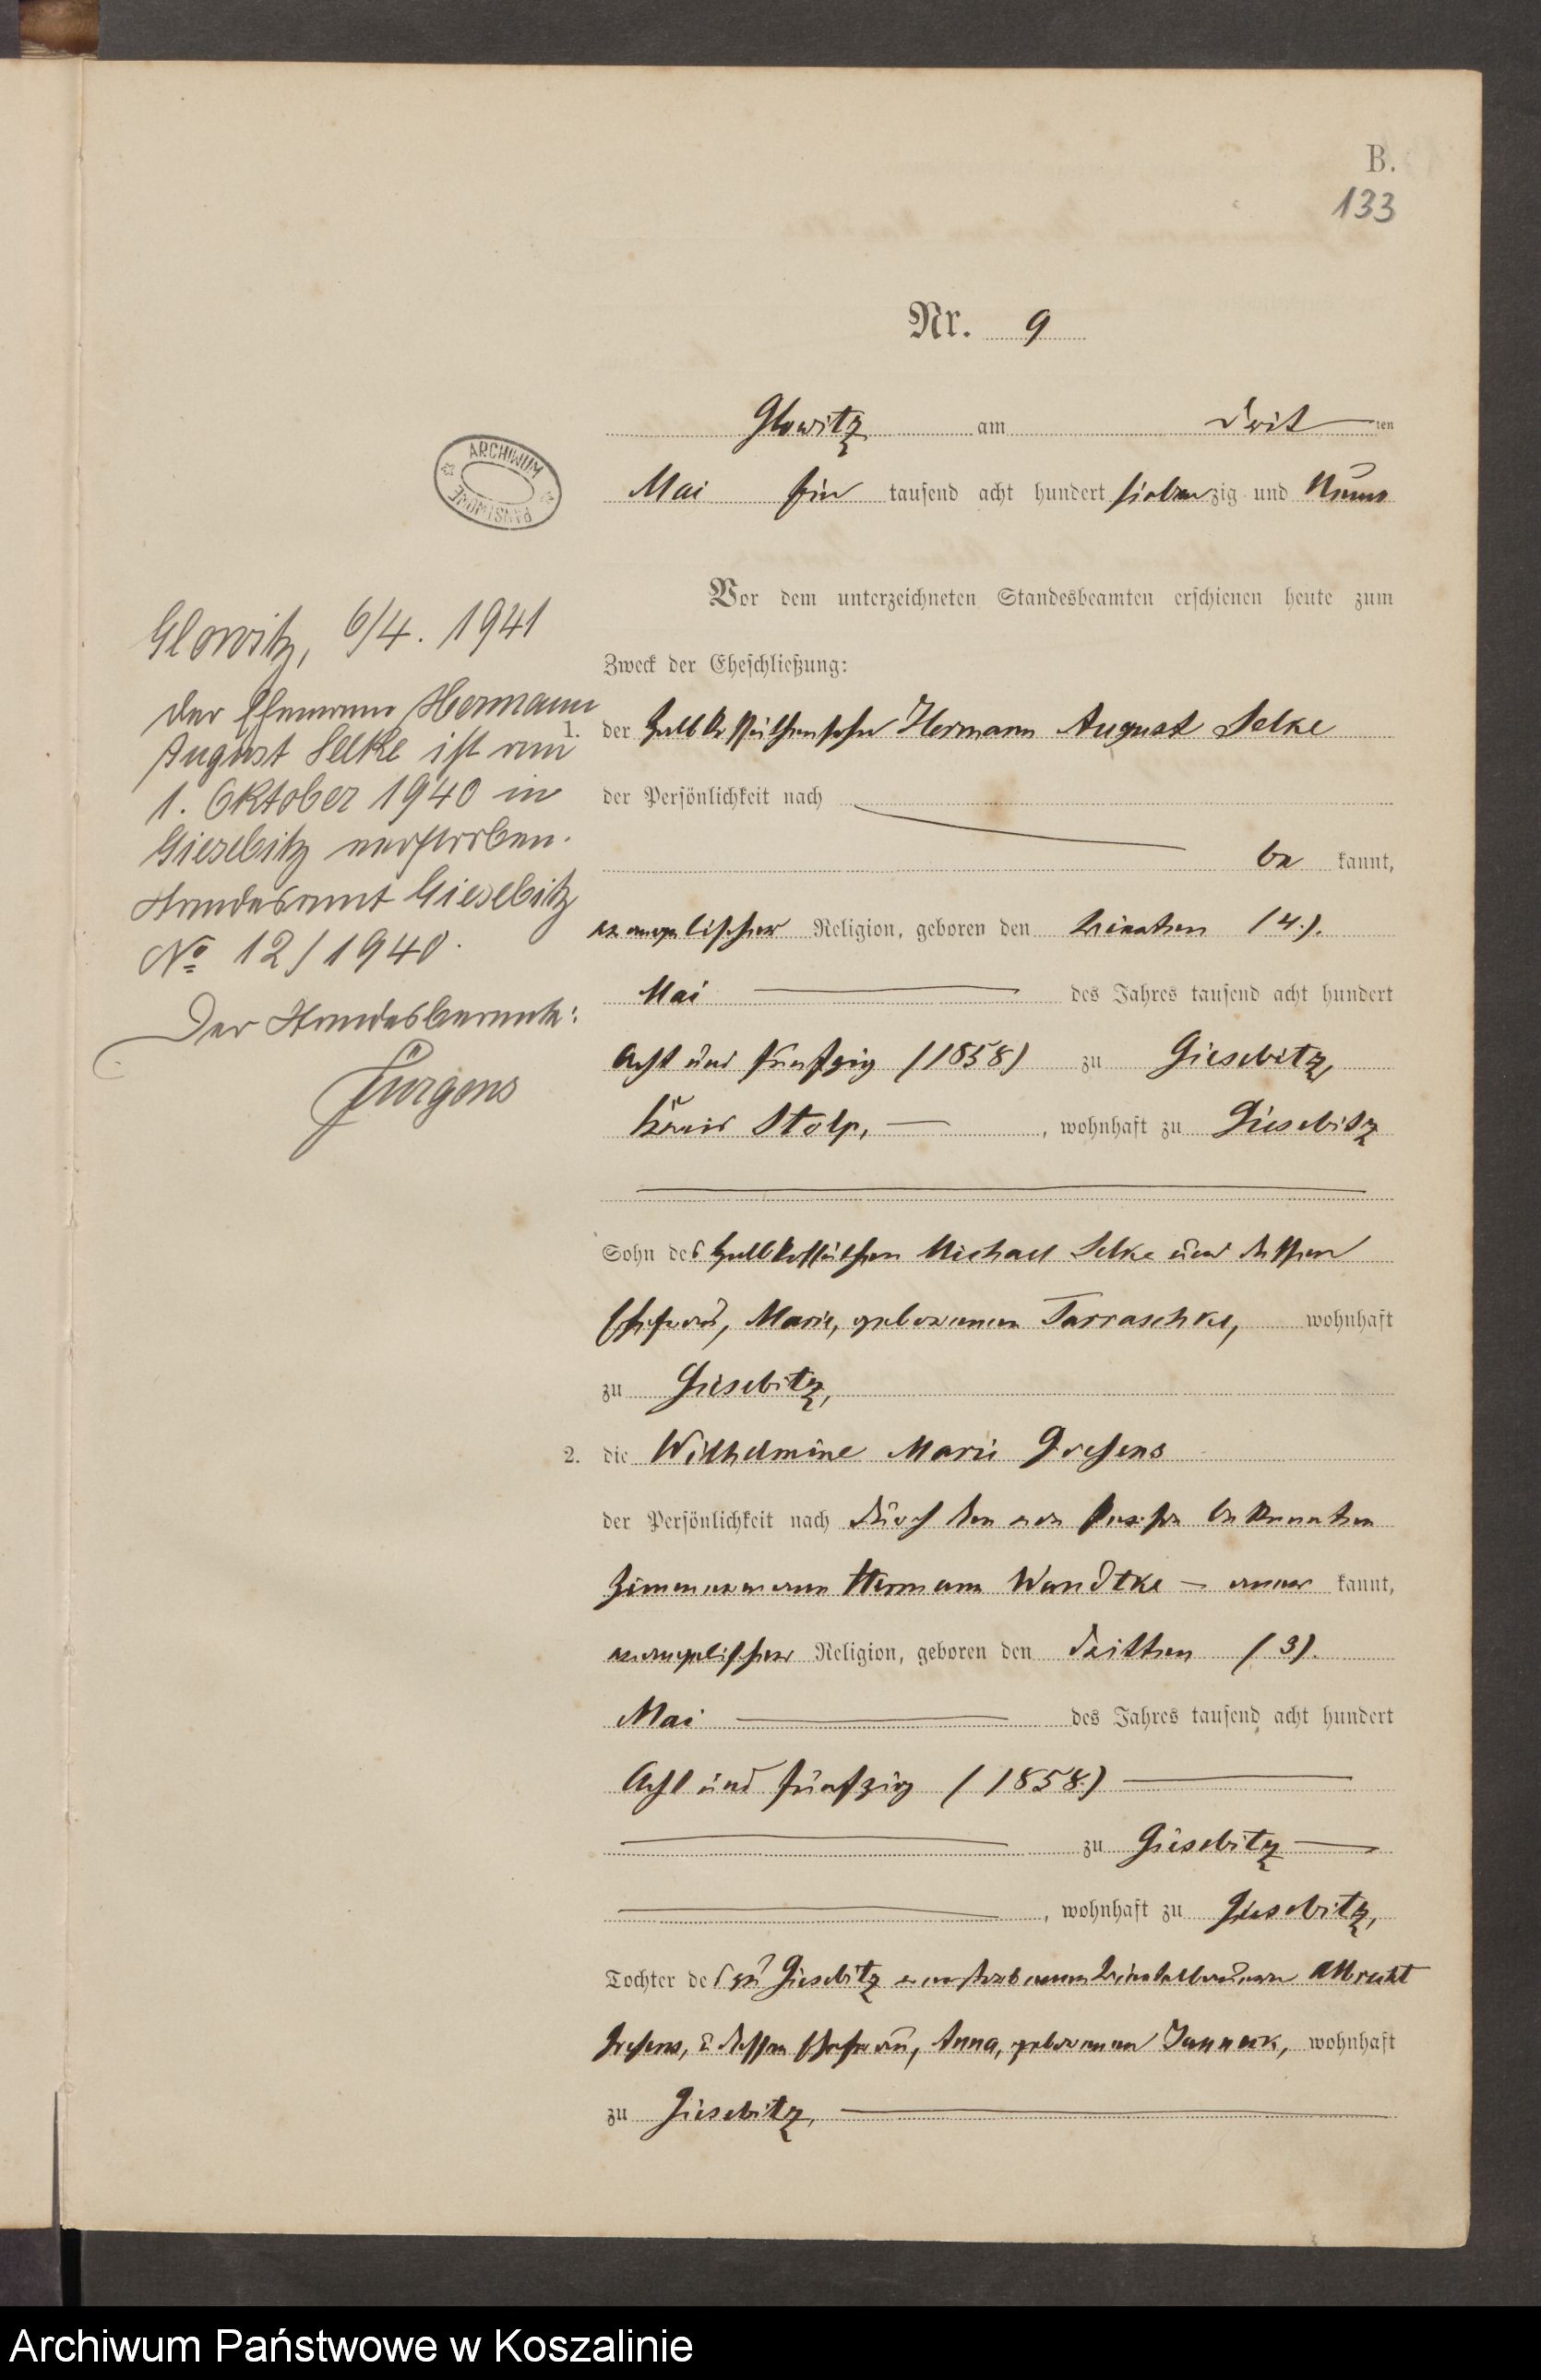 B.
133
Nr. 9
Glowitz am Drit ten
Mai Ein tausend acht hundert siebenzig und Neun
ARCHIWUM PAŃSTWOWE
Vor dem unterzeichneten Standesbeamten erschienen heute zum
Zweck der Eheschließung:
1. der Halbkossäthensohn Hermann August Selke
der Persönlichkeit nach
be kannt,
evangelischer Religion, geboren den vierten (4.).
Mai des Jahres tausend acht hundert
Acht und fünfzig (1858) zu Giesebitz,
Kreis Stolp, , wohnhaft zu Giesebitz
Sohn des Halbkossäthen Michael Selke und dessen
Ehefrau, Marie, geborenen Tarraschke, wohnhaft
zu Giesebitz,
2. die Wilhelmine Marie Gresens
der Persönlichkeit nach durch den von Person bekannten
Zimmermann Hermann Wandtke – aner kannt,
evangelischer Religion, geboren den dritten (3).
Mai des Jahres tausend acht hundert
Acht und fünfzig (1858.)
zu Giesebitz
, wohnhaft zu Giesebitz,
Tochter des zu Giesebitz verstorbenen Albrecht
Gresens, u dessen Ehefrau, Anna, geborenen Janneck, wohnhaft
zu Giesebitz,
Glowitz, 6/4. 1941
Der Ehemann Hermann
August Selke ist am
1. Oktober 1940 in
Giesebitz verstorben.
Standesamt Giesebitz
No 12/1940.
Der Standesbeamte:
Jürgens
Archiwum Państwowe w Koszalinie